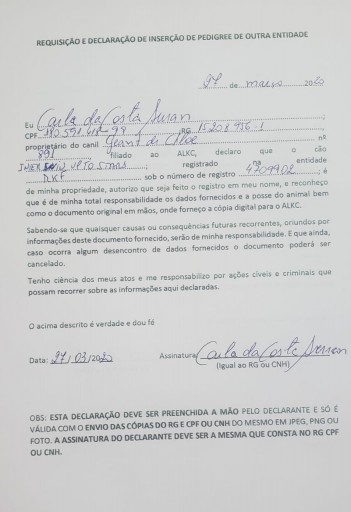 REQUISIÇÃO E DECLARAÇÃO DE INSERÇÃO DE PEDIGREE DE OUTRA ENTIDADE
27 de março 2020
Eu Carla da Costa
CPF RG
proprietário do canil nº
891 filiado ao ALKC, declaro que o cão
registrado na entidade
sob o número de registro 4709902 ; é
de minha propriedade, autorizo que seja feito o registro em meu nome, e reconheço
que é de minha total responsabilidade os dados fornecidos e a posse do animal bem
como o documento original em mãos, onde forneço a cópia digital para o ALKC.
Sabendo-se que quaisquer causas ou consequências futuras recorrentes, oriundos por
informações deste documento fornecido, serão de minha responsabilidade. E que ainda,
caso ocorra algum desencontro de dados fornecidos o documento poderá ser
cancelado.
Tenho ciência dos meus atos e me responsabilizo por ações cíveis e criminais que
possam recorrer sobre as informações aqui declaradas.
O acima descrito é verdade e dou fé
Data: 27/03/2020 Assinatura Carla da Costa
(Igual ao RG ou CNH)
OBS: ESTA DECLARAÇÃO DEVE SER PREENCHIDA A MÃO PELO DECLARANTE E SÓ É
VÁLIDA COM O ENVIO DAS CÓPIAS DO RG E CPF OU CNH DO MESMO EM JPEG, PNG OU
FOTO. A ASSINATURA DO DECLARANTE DEVE SER A MESMA QUE CONSTA NO RG CPF
OU CNH.